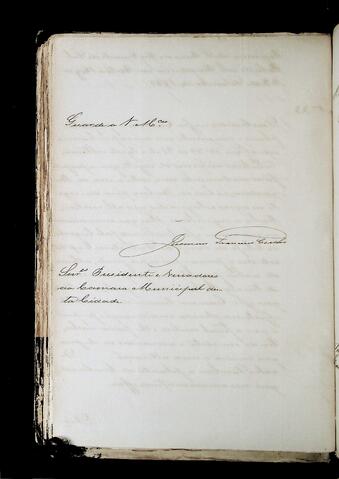 Guarde a V. M.ces
Francisco
Snr.es Presidente e Vereadores
da Camara Municipal des-
ta Cidade